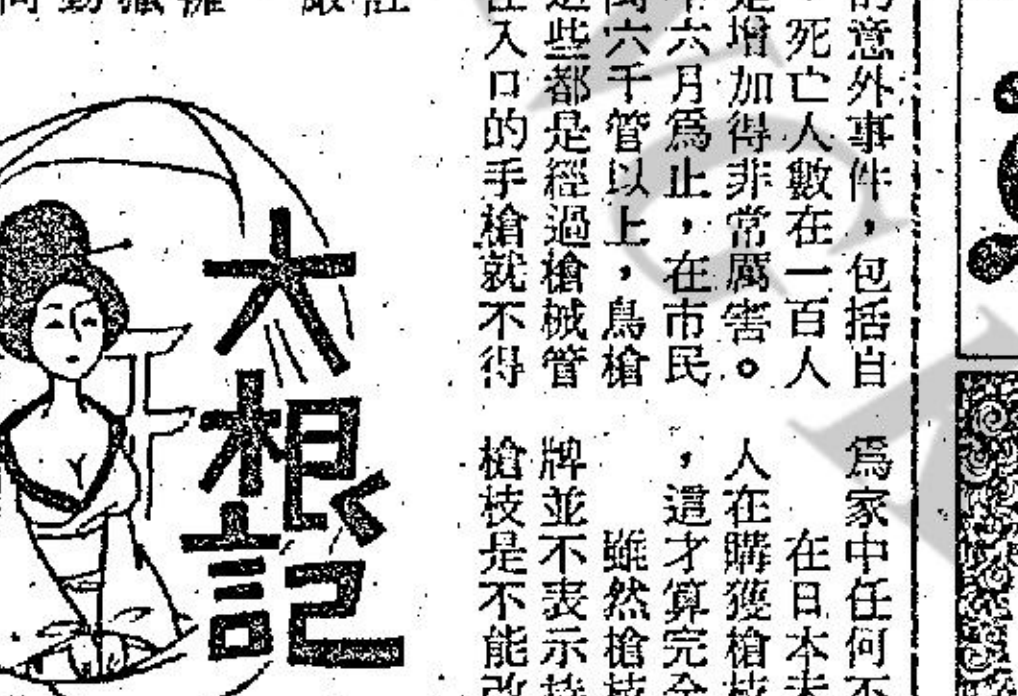 的意外事件，包括自
死亡人數在一百人
是增加得非常厲害。
六月爲止，在市民
萬六千管以上，鳥槍
這些都是經過槍械管
入口的手槍就不得
爲家中任何不
在日本未
人在購獲槍枝
，這才算完全
雖然槍枝
牌並不表示持
槍枝是不能改
大根記